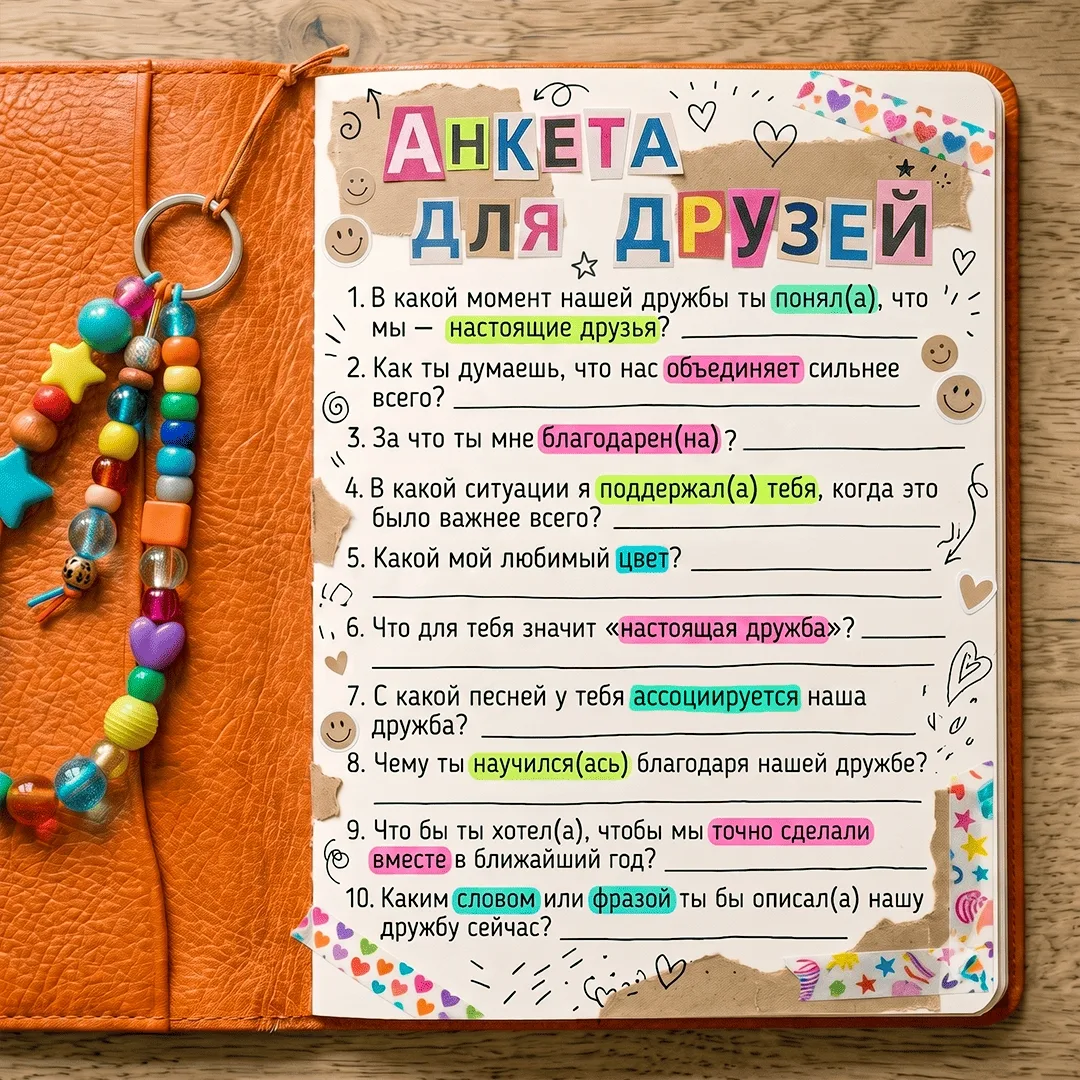 АНКЕТА
ДЛЯ ДРУЗЕЙ
1. В какой момент нашей дружбы ты понял(а), что
мы — настоящие друзья?
2. Как ты думаешь, что нас объединяет сильнее
всего?
3. За что ты мне благодарен(на)?
4. В какой ситуации я поддержал(а) тебя, когда это
было важнее всего?
5. Какой мой любимый цвет?
6. Что для тебя значит «настоящая дружба»?
7. С какой песней у тебя ассоциируется наша
дружба?
8. Чему ты научился(ась) благодаря нашей дружбе?
9. Что бы ты хотел(а), чтобы мы точно сделали
вместе в ближайший год?
10. Каким словом или фразой ты бы описал(а) нашу
дружбу сейчас?